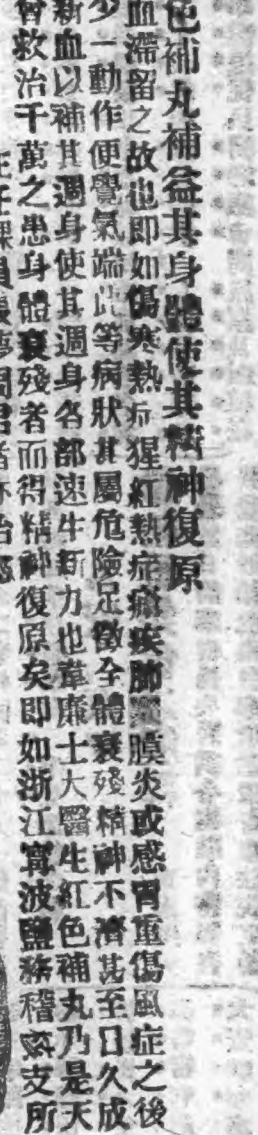 色補丸補益其身體使其精神復原
血滯留之故也即如傷寒熱症猩紅熱症瘧疾肺炎膜炎或感冒重傷風症之後
少一動作便覺氣端此等病狀其屬危險足徵全體衰殘精神不濟甚至日久成
新血以補其週身使其週身各部速生新力也韋廉士大醫生紅色補丸乃是天
曾救治千萬之患身體衰殘者而得精神復原矣即如浙江寗波鹽務稽核支所